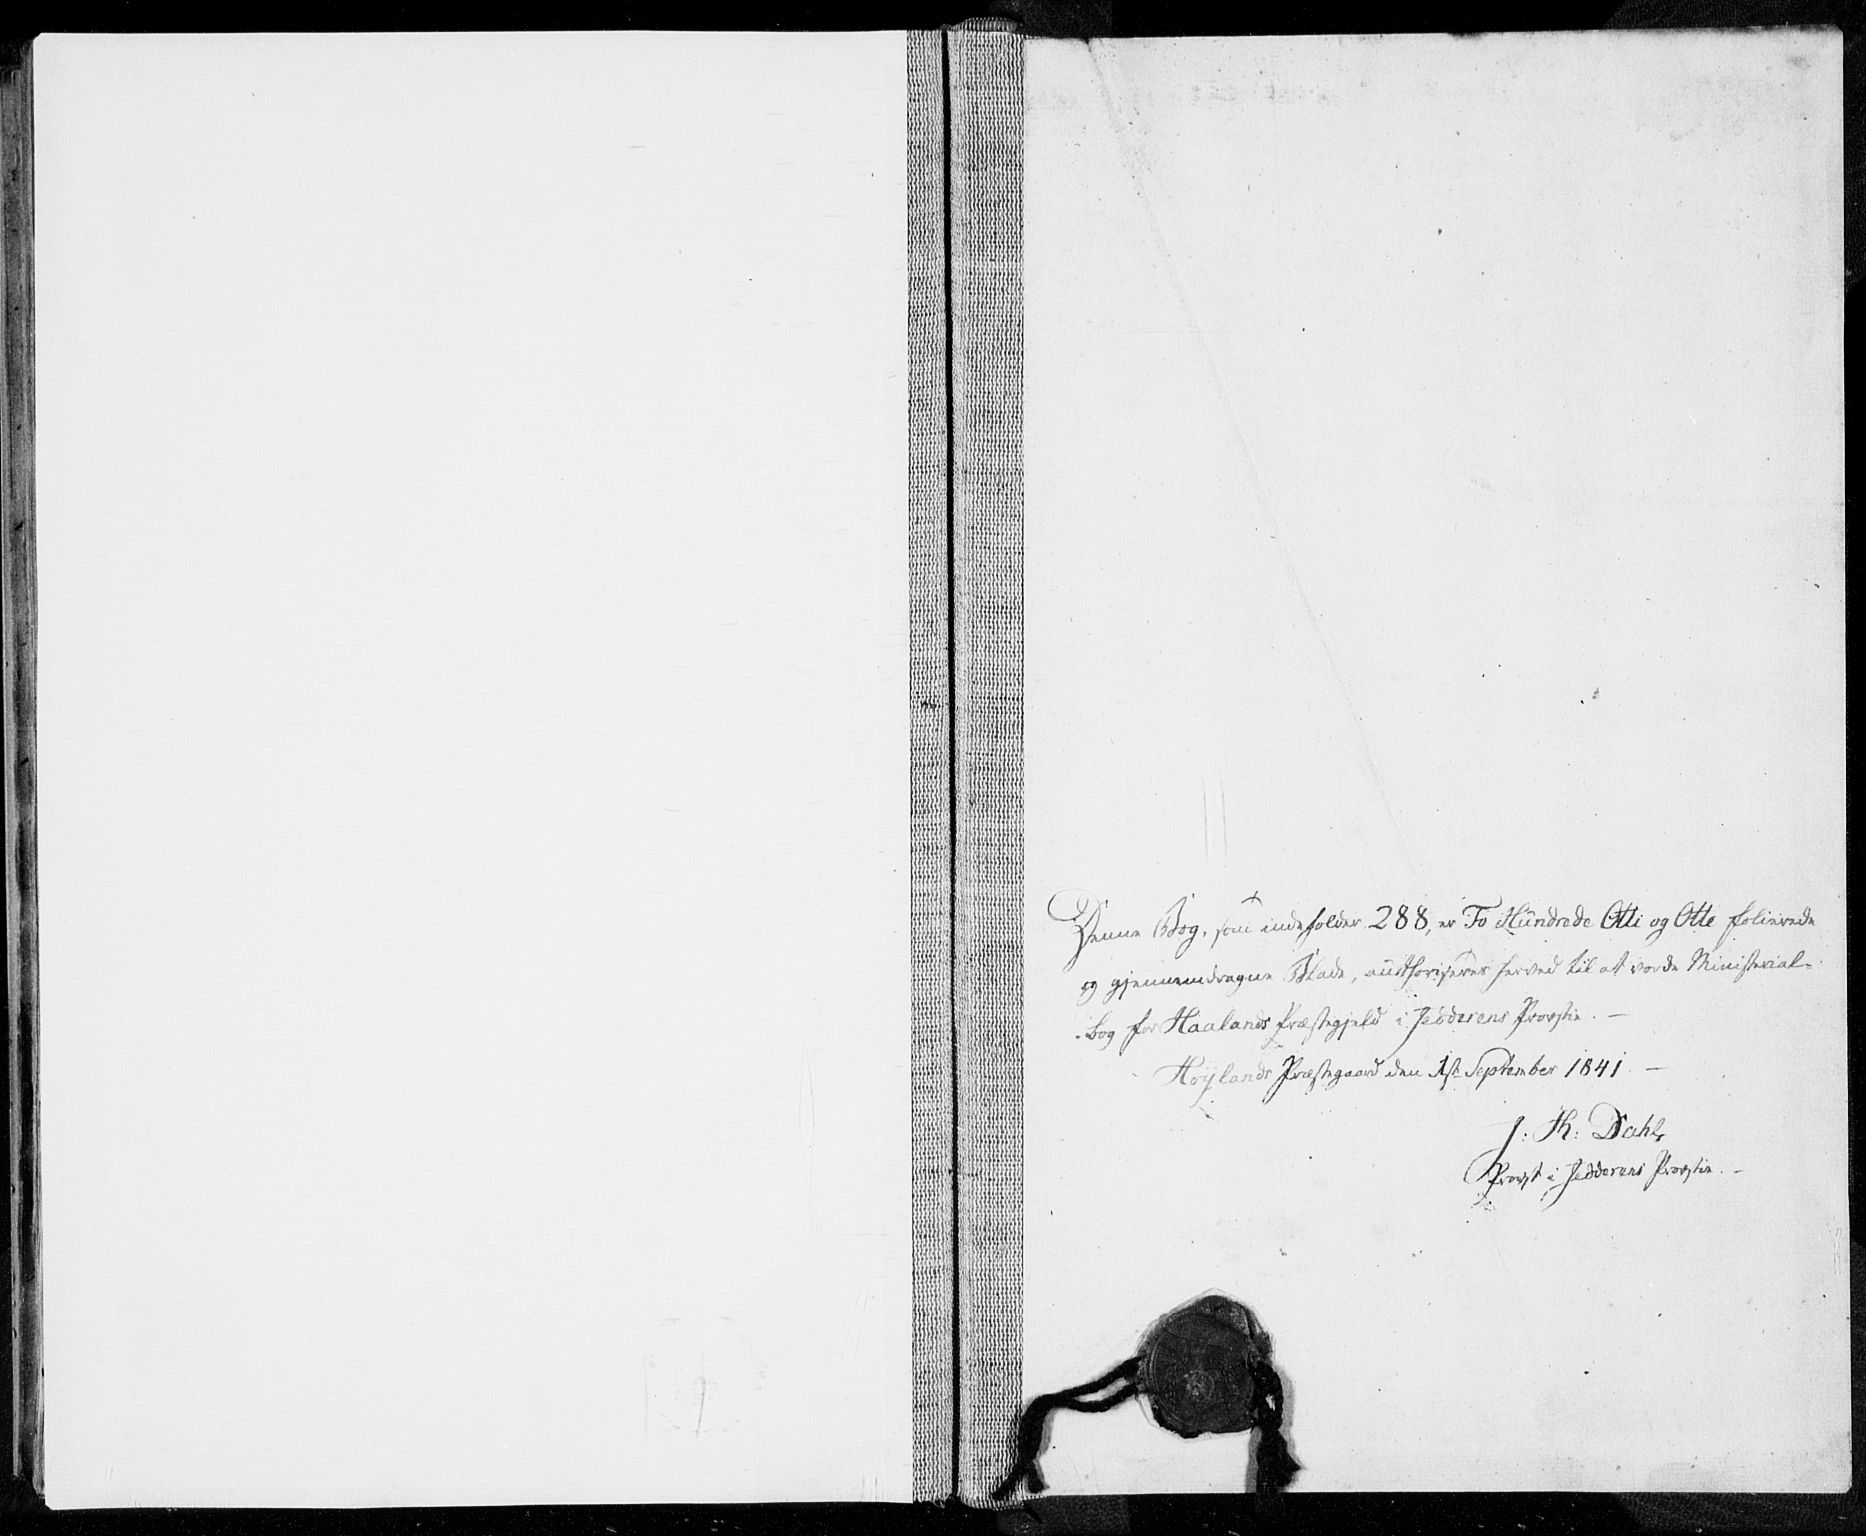 Denne Bog, som indeholder 288, er To Hundrede Otti og Otte folierede
og gjennemdragne Blade, authoriseres herved til at vorde Ministerial-
bog for Haalands Præstegjeld i Jedderens Provstie. —
Høÿlands Præstegaard den 1st September 1841. —
J: Th: Dahl,
Provst i Jedderens Provstie. —